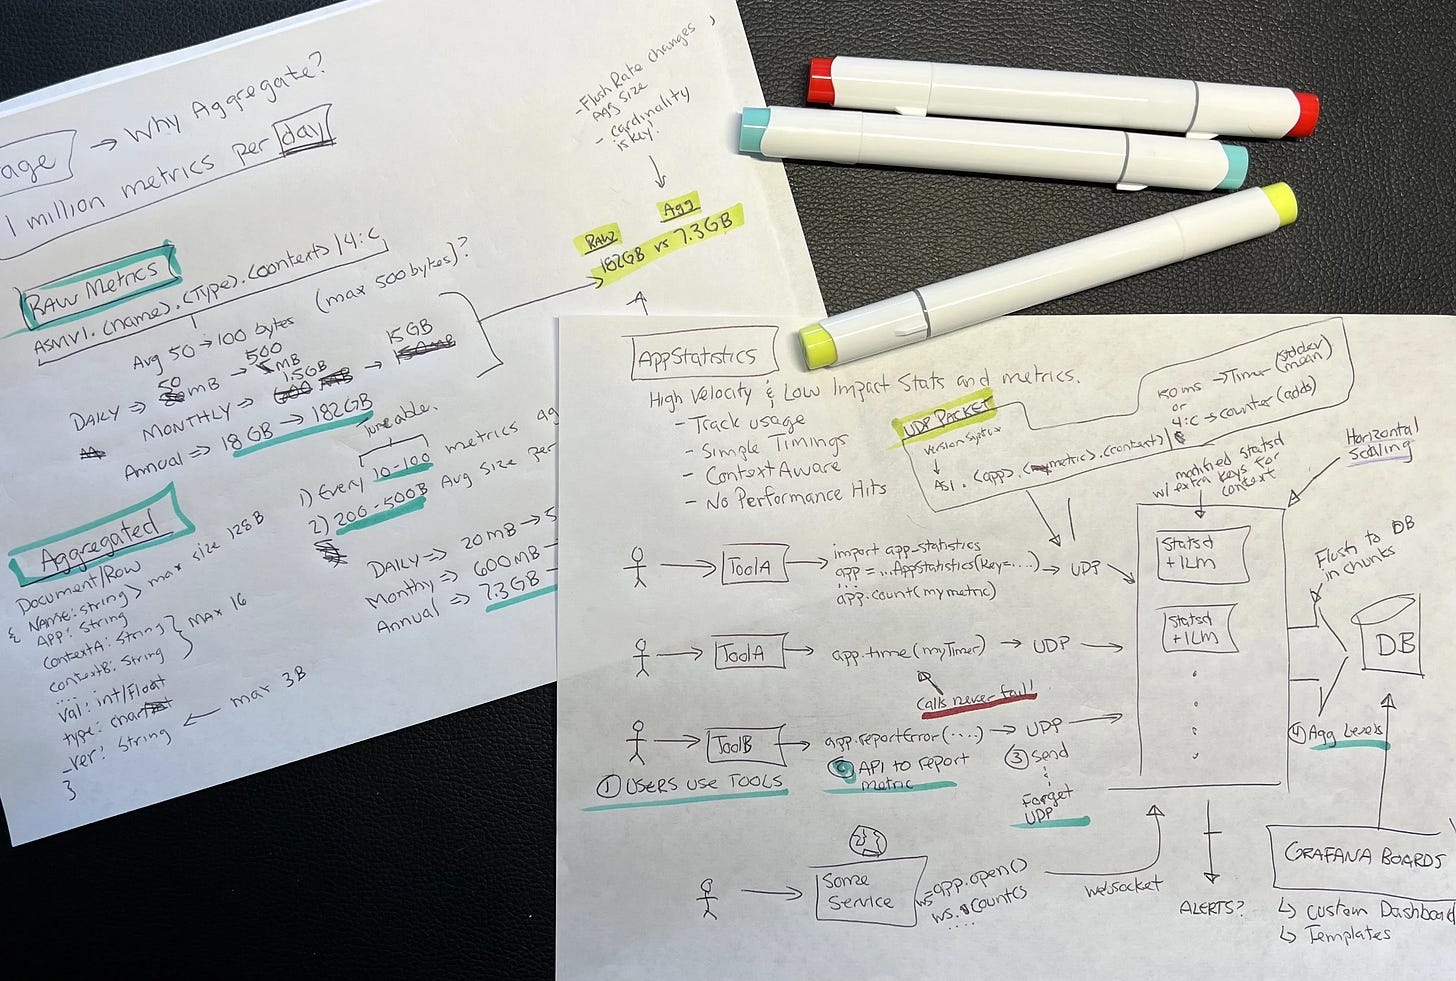 age → Why Aggregate?
1 million metrics per day
- Flush Rate changes
Agg size
- Cardinality
is key!
RAW Agg
182GB vs 7.3GB
RAW Metrics
ASMV1.(name).(Type).(context)|4:c
Avg 50→100 bytes (max 500bytes)?
DAILY ⇒ 50 MB → 500 MB
MONTHLY ⇒ 1.5GB → 15GB
Annual ⇒ 18GB → 182GB
Tuneable.
1) Every 10-100 metrics ag
2) 200-500B Avg size per
DAILY ⇒ 20MB → 5
Monthy ⇒ 600MB -
Annual ⇒ 7.3GB -
Aggregated
Document/Row
{ Name: string > max size 128B
App: String
ContextA: String
contextB: String } max 16
....
val: int/Float
type: char
_ver: String ← max 3B
}
AppStatistics
High Velocity & Low Impact Stats and metrics.
- Track usage
- Simple Timings
- Context Aware
- No Performance Hits
UDP PACKET
version syntax
AS1.(app).(metric).(context)|
150ms → Timer (stddev mean)
or
4:c → counter (adds)
modified statsd
w/ extra keys for
context
Horizontal
Scaling
ToolA → import app_statistics
app = ...AppStatistics(key=....) → UDP
....
app.count(mymetric)
ToolA → app.time(myTimer) → UDP
Calls never fail!
ToolB → app.reportError(....) → UDP
① USERS USE TOOLS
② API TO report
metric
③ Send
Forget
UDP
Statsd
+ILM
Statsd
+ILM
Flush to DB
in chunks
DB
④ Agg Levels
Some
Service
ws=app.open()
ws.count()
....
websocket
ALERTS?
GRAFANA BOARDS
↳ Custom Dashboard
↳ Templates